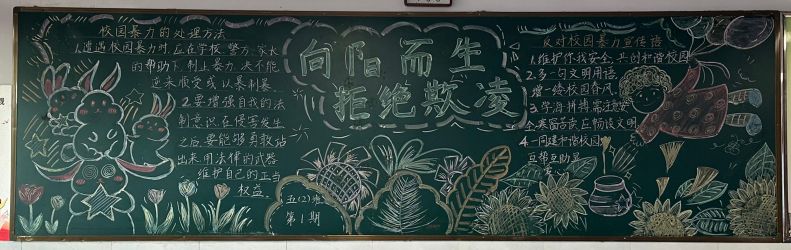 校园暴力的处理方法
1.遭遇校园暴力时,应在学校、警方、家长
的帮助下制止暴力,决不能
逆来顺受或以暴制暴.
2.要增强自我的法
制意识,在侵害发生
之后要能够勇敢站
出来用法律的武器
维护自己的正当
权益.
向阳而生
拒绝欺凌
五(2)班
第1期
反对校园暴力宣传语
1.维护你我安全,共创和谐校园
2.多一句文明用语,
增一缕校园春风.
3.学海拼搏需
寒窗苦读应畅谈文明
4.一同建和谐校园
互帮互助显